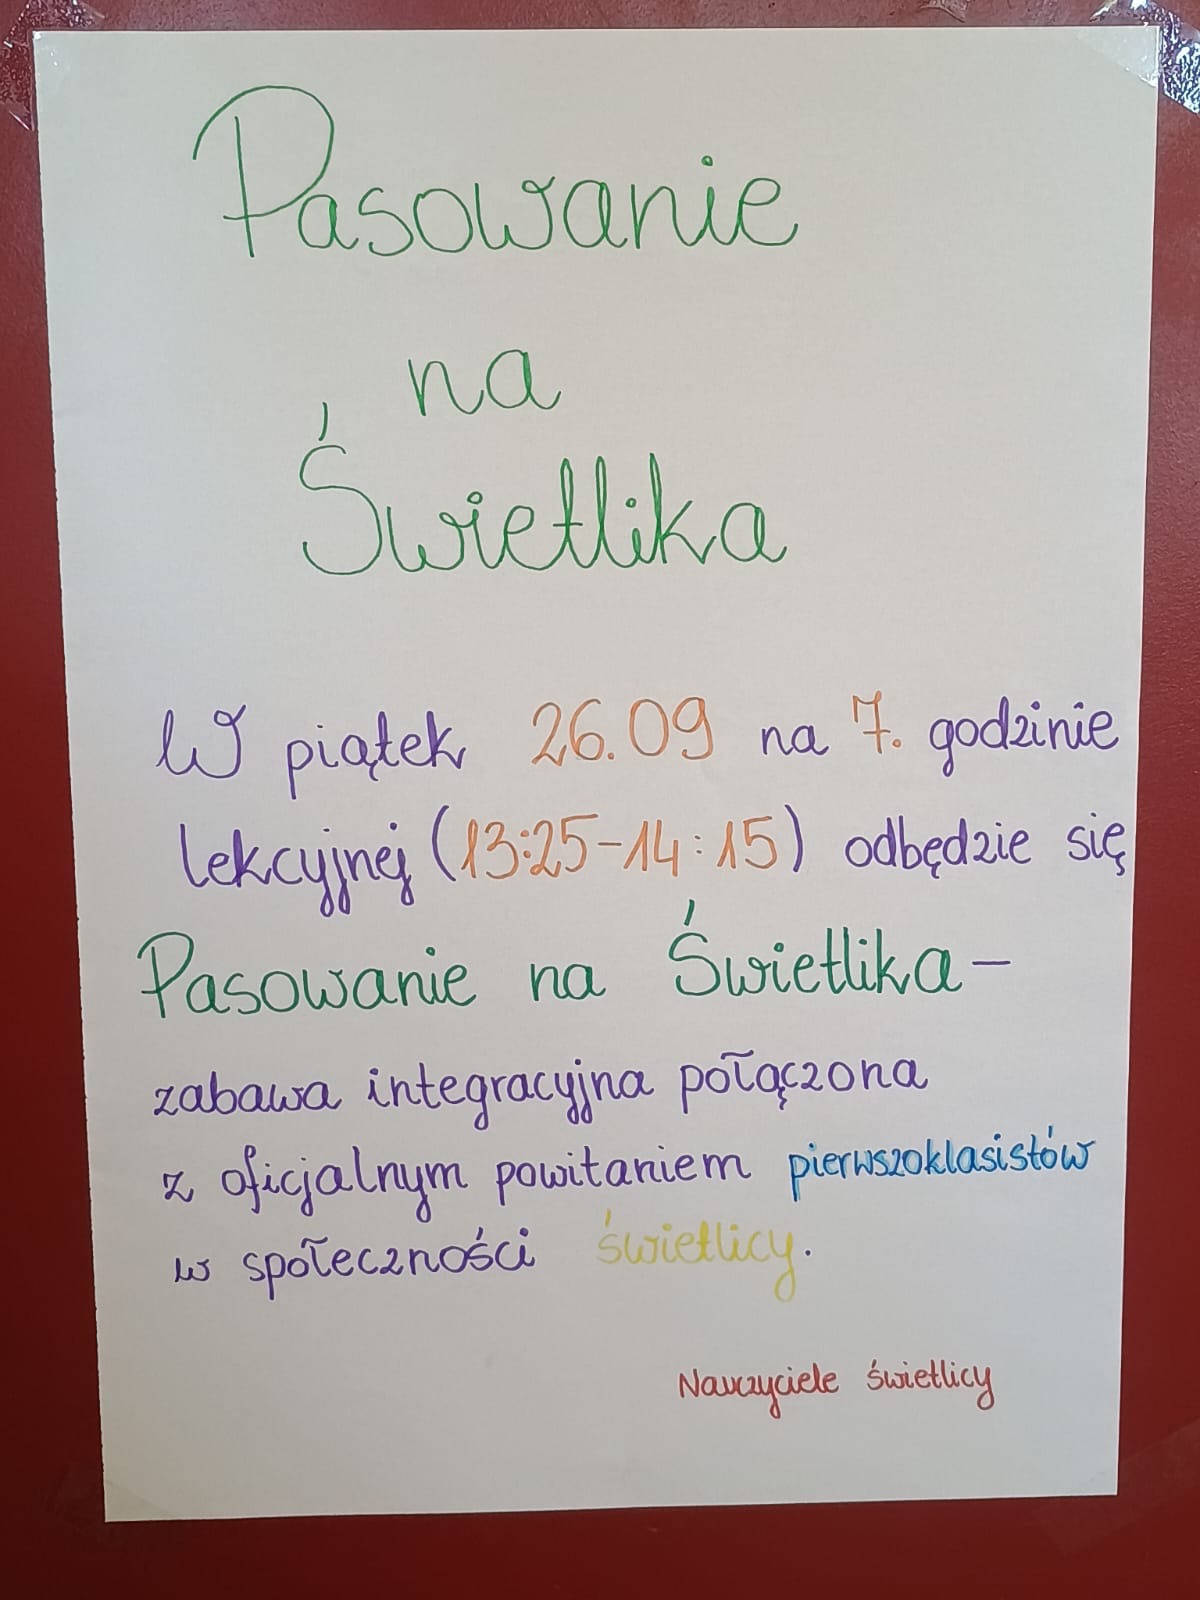 Pasowanie
na
Świetlika
W piątek 26.09 na 7. godzinie
lekcyjnej (13:25-14:15) odbędzie się
Pasowanie na Świetlika-
zabawa integracyjna połączona
z oficjalnym powitaniem pierwszoklasistów
w społeczności świetlicy.
Nauczyciele świetlicy